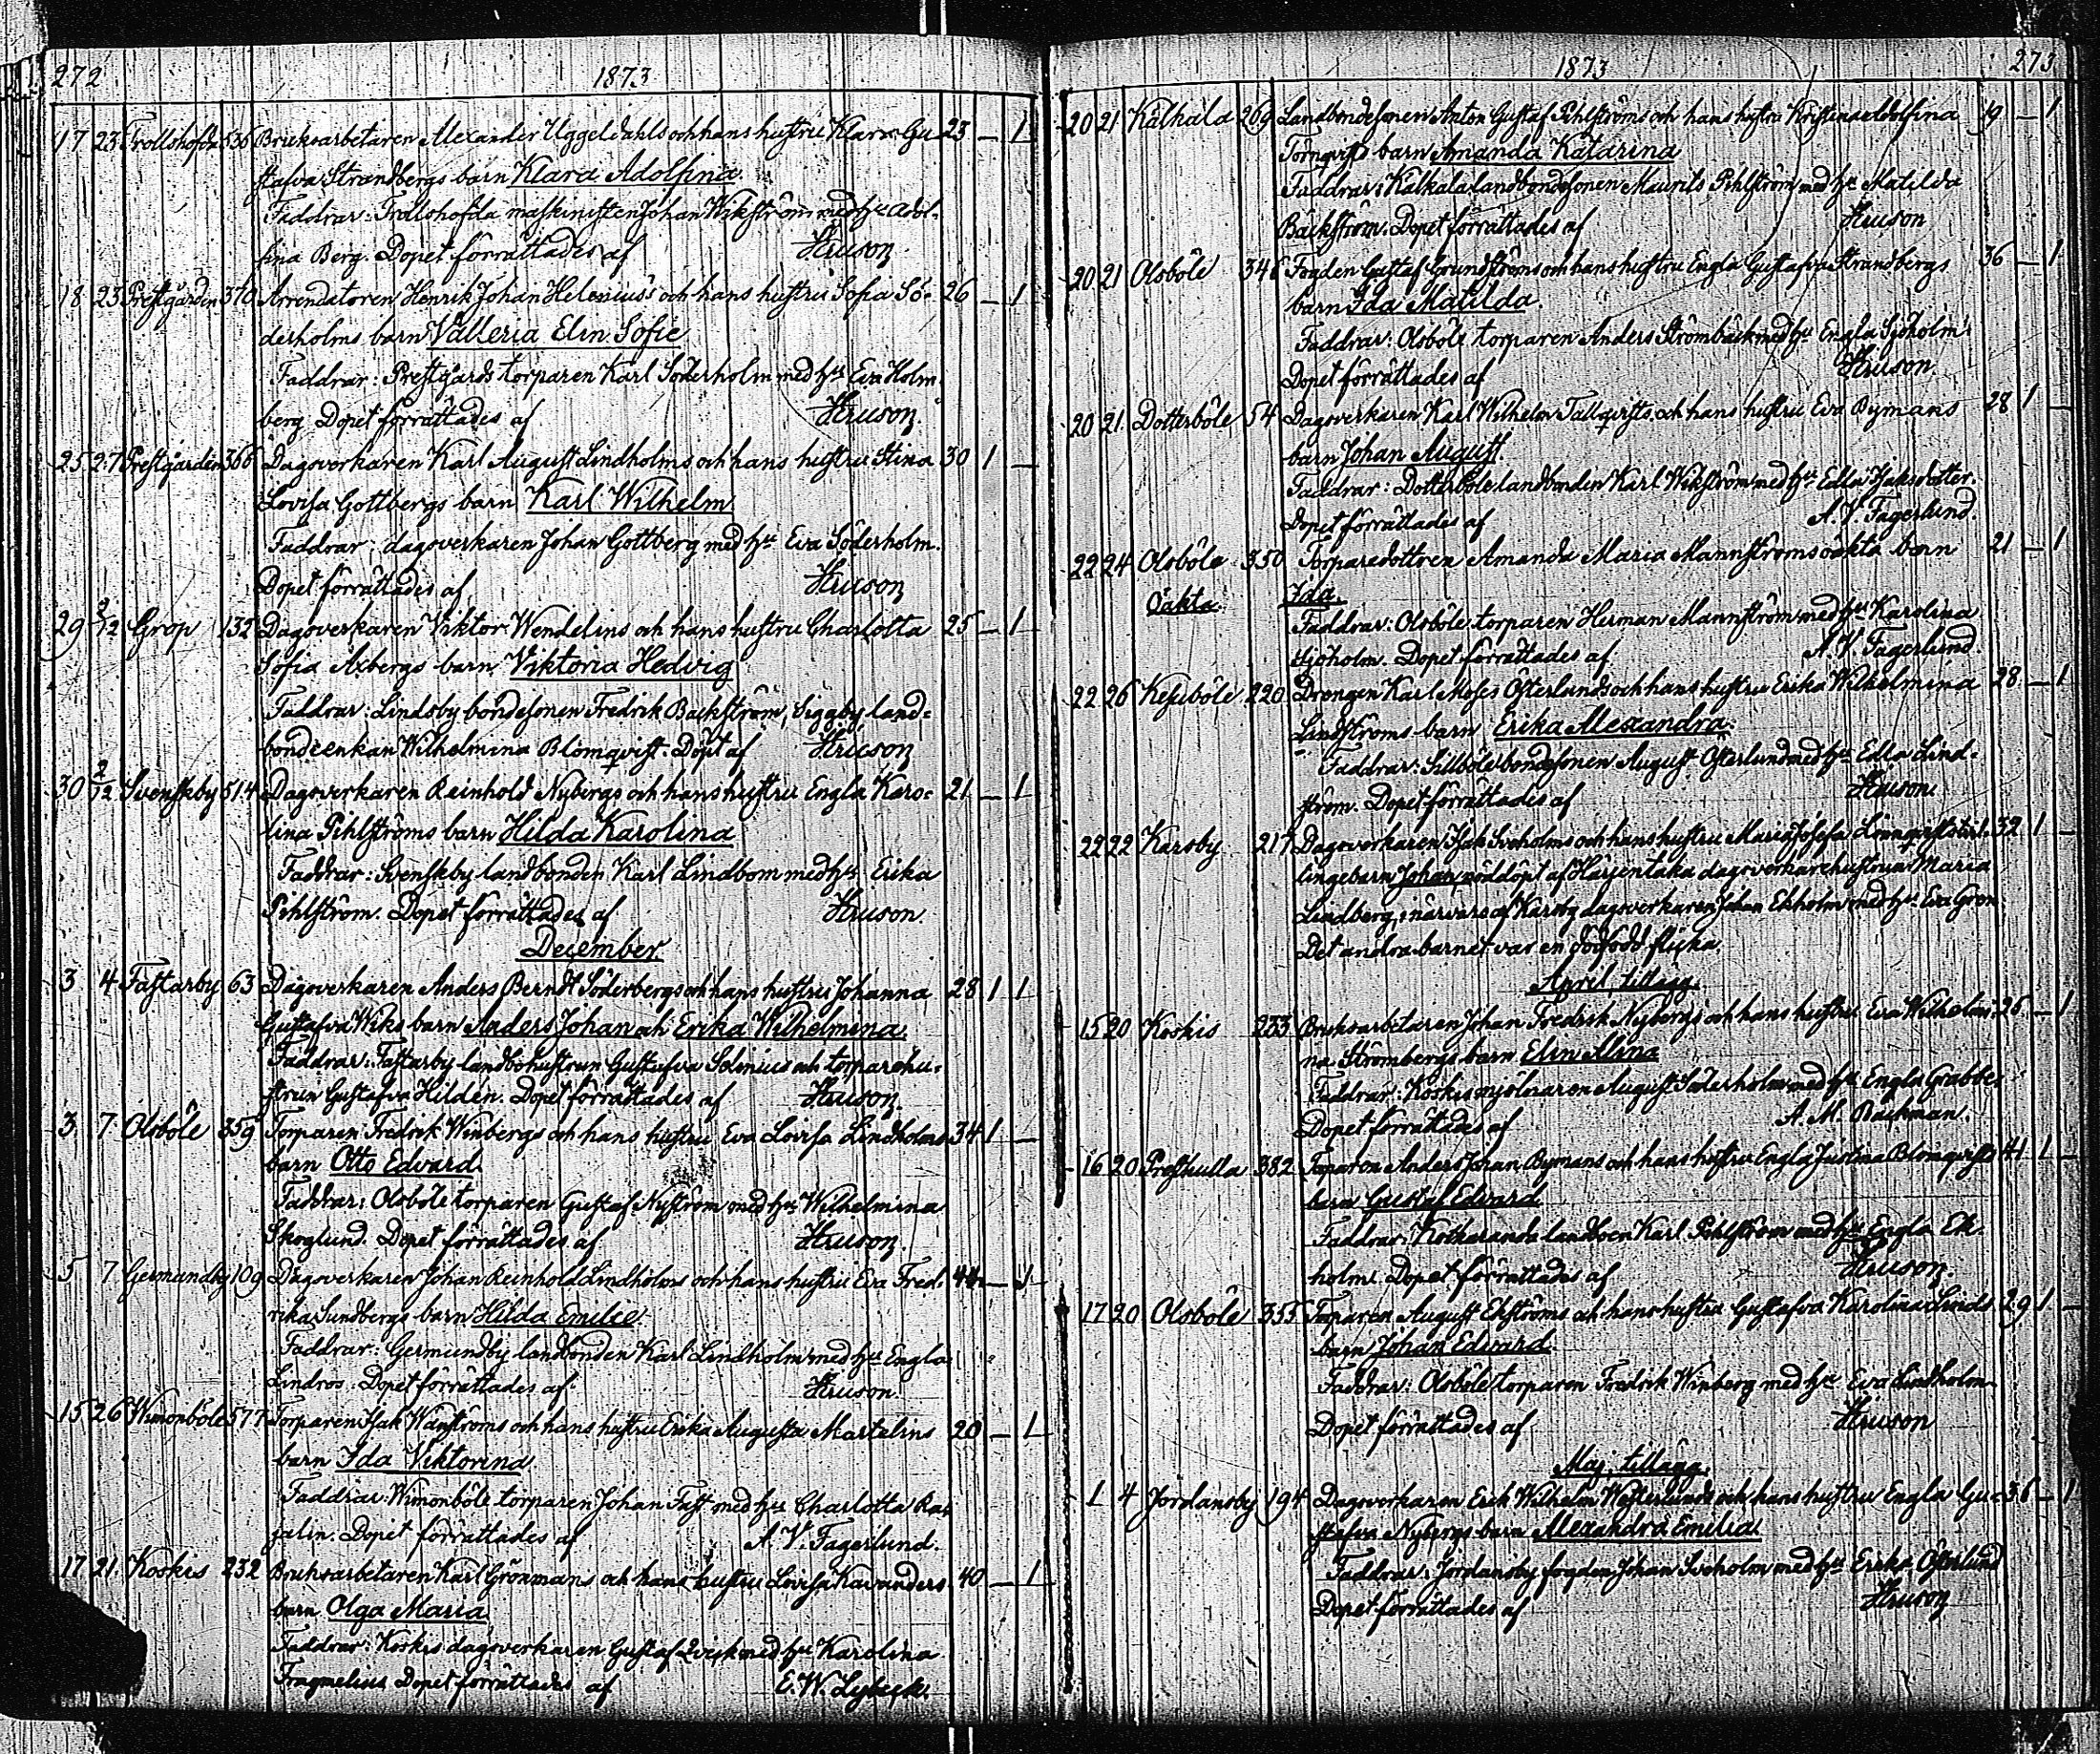 272 1873
17 23 Trollshofda 536 Bruksarbetaren Alexander Uggeldahls och hans hustru Klara Gu- 23 — 1
stafva Strandbergs barn Klara Adolfina.
Faddrar: Trollshofda maskinisten Johan Wikström med hu Adol-
fina Berg. Dopet förrättades af Hruson
18 23 Prestgården 370 Arrendatoren Henrik Johan Helenius's och hans hustru Sofia Sö- 26 — 1
derholms barn Valleria Elin Sofie
Faddrar: Prestgårds torparen Karl Söderholm med hu Eva Holm-
berg Dopet förrättades af Hruson
25 27 Prestgården 366 Dagsverkaren Karl August Lindholms och hans hustru Stina 30 1 —
Lovisa Gottbergs barn Karl Wilhelm
Faddrar: dagsverkaren Johan Gottberg med hu Eva Söderholm.
Dopet förrättades af Hruson
29 2/12 Grop 132 Dagsverkaren Viktor Wendelins och hans hustru Charlotta 25 — 1
Sofia Axbergs barn Viktoria Hedvig
Faddrar: Lindsby bondesonen Fredrik Backström, Siggby land-
bondeenkan Wilhelmina Blomqvist. Döpt af Hruson
30 2/12 Svenskby 514 Dagsverkaren Reinhold Nybergs och hans hustru Engla Karo- 21 — 1
lina Pihlströms barn Hilda Karolina
Faddrar: Svenskby landbonden Karl Lindbom med hu Erika
Pihlström. Dopet förrättades af Hruson.
December
3 4 Fastarby 63 Dagsverkaren Anders Berndt Söderbergs och hans hustru Johanna 28 1 1
Gustafva Wiks barn Anders Johan och Erika Wilhelmina.
Faddrar: Fastarby landbohustrun Gustafva Selenius och torparehu-
strun Gustafva Hildén. Dopet förrättades af Hruson.
3 7 Olsböle 359 Torparen Fredrik Winbergs och hans hustru Eva Lovisa Lindholms 34 1 —
barn Otto Edvard.
Faddrar: Olsböle torparen Gustaf Nyström med hu Wilhelmina
Skoglund. Dopet förrättades af Hruson.
5 7 Germundby 109 Dagsverkaren Johan Reinhold Lindholms och hans hustru Eva Fred- 44 — 1
rika Sundbergs barn Hilda Emilie.
Faddrar: Germundby landbonden Karl Lindholm med hu Engla
Lindros. Dopet förrättades af Hruson.
15 26 Wimonböle 577 Torparen Isak Wanströms och hans hustru Erika Augusta Martelins 20 — 1
barn Ida Viktorina
Faddrar: Wimonböle torparen Johan Fast med hu Charlotta Ra-
jalin. Dopet förrättades af A. V. Fagerlund.
17 21 Koskis 232 Bruksarbetaren Karl Grönmans och hans hustru Lovisa Kavanders 40 — 1
barn Olga Maria
Faddrar: Koskis dagsverkaren Gustaf Qvick med hu Karolina
Dopet förrättades af E. W. Lybeck.
1873 273
20 21 Kålhala 209 Landbondesonen Anton Gustaf Pihlströms och hans hustru Kristina Adolfina 19 — 1
Törnqvists barn Amanda Katarina
Faddrar: Kålhala landbondesonen Maurits Pihlström med hu Matilda
Bäckström. Dopet förrättades af Hruson
20 21 Olsböle 346 Fogden Gustaf Grundströms och hans hustru Engla Gustafva Strandbergs 36 — 1
barn Ida Matilda.
Faddrar: Olsböle torparen Anders Strömbäck med hu Engla Sjöholm.
Dopet förrättades af Hruson.
20 21 Dotterböle 54 Dagsverkaren Karl Wilhelm Tallqvists och hans hustru Eva Bymans 28 1 —
barn Johan August.
Faddrar: Dotterböle landbonden Karl Wikström med hu Edla Isaksdotter.
Dopet förrättades af A. V. Fagerlund.
22 24 Olsböle 350 Torparedottren Amanda Maria Mannströms oäkta barn 21 — 1
Oäkta. Ida.
Faddrar: Olsböle torparen Herman Mannström med hu Karolina
Sjöholm. Dopet förrättades af A. V. Fagerlund.
22 26 Kesuböle 220 Drengen Karl Moses Österlunds och hans hustru Erika Wilhelmina 28 — 1
Lindströms barn Erika Alexandra.
Faddrar: Sillböle bondesonen August Österlund med hu Edla Lind-
ström. Dopet förrättades af Hruson.
22 22 Karsby 217 Dagsverkaren Isak Sveholms och hans hustru Maria Josefa Lönnqvists tvil- 32 1 —
lingebarn Johan, nöddöpt af Härjentaka dagsverkarehustrun Maria
Lindberg; närvaro af Karsby dagsverkaren Johan Ekholm med hu Eva Grön
Det andra barnet var en dödfödd flicka.
April, tillägg.
15 20 Koskis 233 Bruksarbetaren Johan Fredrik Nybergs och hans hustru Eva Wilhelmi- 26 — 1
na Strömbergs barn Elin Alina
Faddrar: Koskis mjölnaren August Söderholm med hu Engla Grabbe.
Dopet förrättades af A. M. Bachman.
16 20 Preskulla 382 Torparen Anders Johan Bymans och hans hustru Engla Justina Blomqvists 41 1 —
barn Gustaf Edvard
Faddrar: landboen Karl Pihlström med hu Engla Ek-
holm. Dopet förrättades af Hruson.
17 20 Olsböle 355 Torparen August Ekströms och hans hustru Gustafva Karolina Linds 29 1 —
barn Johan Edvard.
Faddrar: Olsböle torparen Fredrik Winberg med hu Eva Lindholm
Dopet förrättades af Hruson
Maj, tillägg.
1 4 Jordansby 194 Dagsverkaren Erik Wilhelm Westerlunds och hans hustru Engla Gu- 36 — 1
stafva Nybergs barn Alexandra Emilia.
Faddrar: Jordansby fogden Johan Sveholm med hu Erika Österlund
Dopet förrättades af Hruson